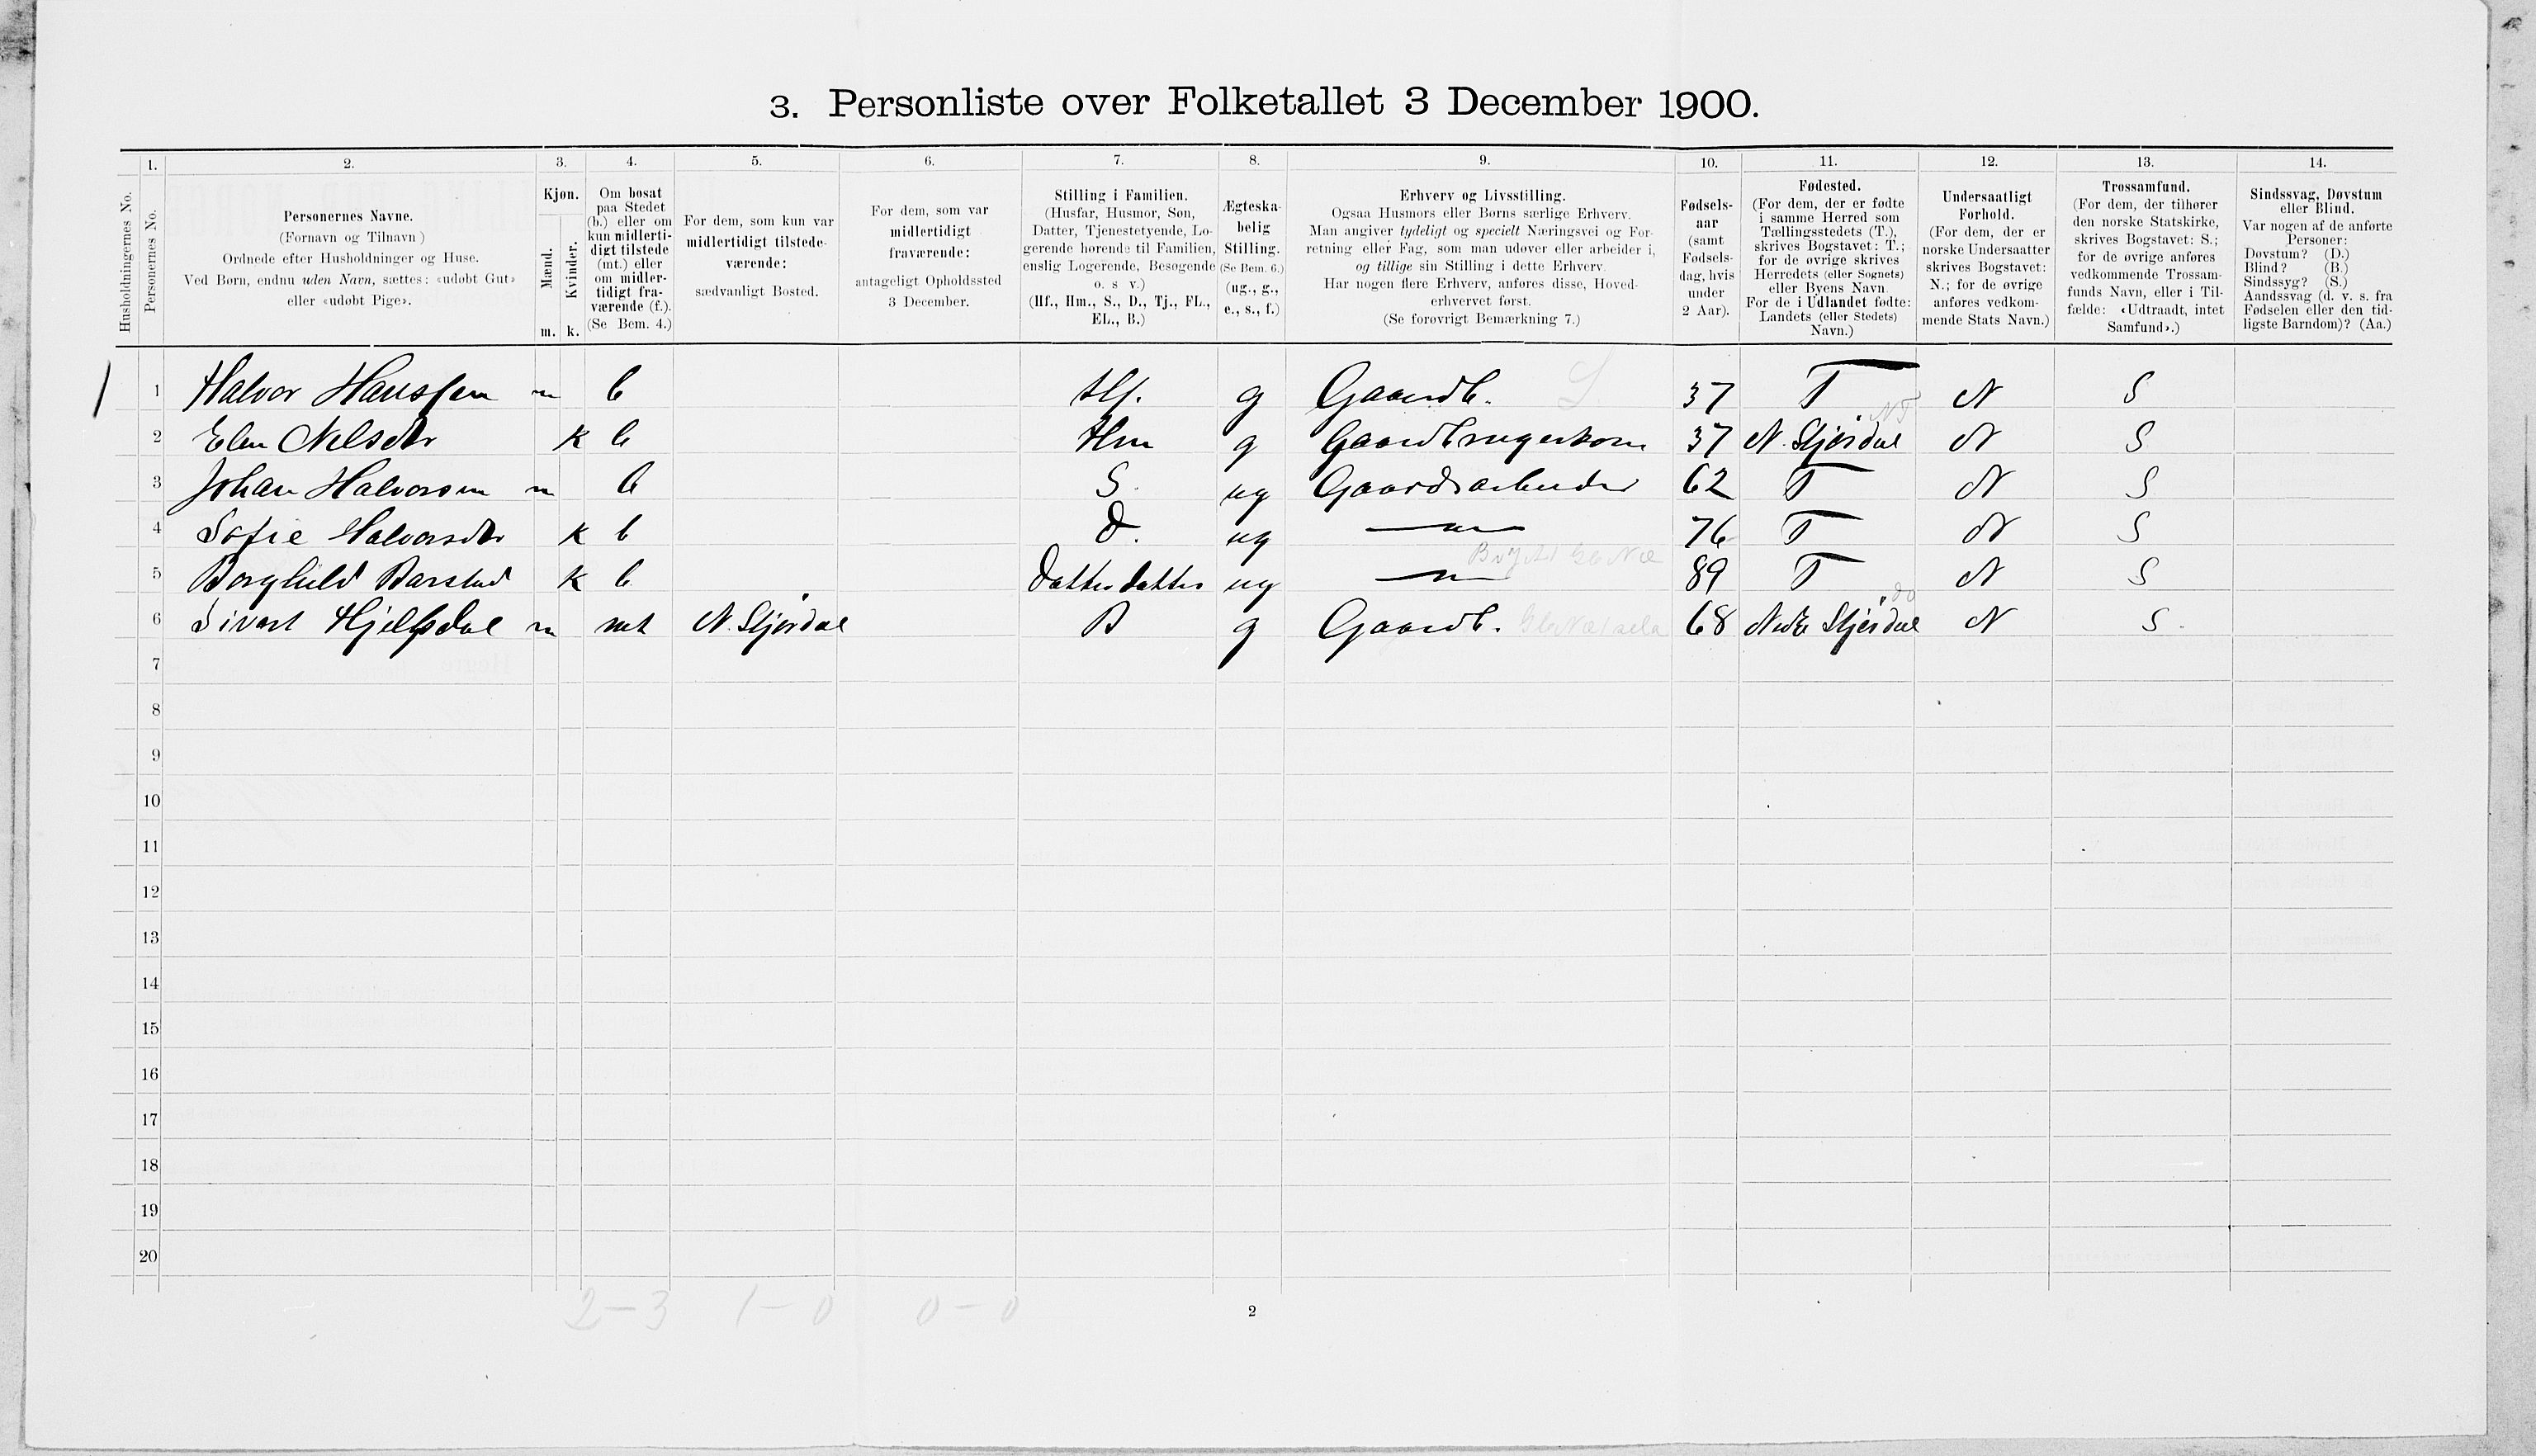 3. Personliste over Folketallet 3 December 1900.
1. 2. 3. 4. 5. 6. 7. 8. 9. 10. 11. 12. 13. 14.
Husholdningernes No.
Personernes No.
Personernes Navne.
(Fornavn og Tilnavn)
Ordnede efter Husholdninger og Huse.
Ved Børn, endnu uden Navn, sættes: «udøbt Gut»
eller «udøbt Pige».
Kjøn.
Mænd.
Kvinder.
m. k.
Om bosat
paa Stedet
(b.) eller om
kun midlerti-
digt tilstede
(mt.) eller
om midler-
tidigt fra-
værende (f.).
(Se Bem. 4.)
For dem, som kun var
midlertidigt tilstede-
værende:
sædvanligt Bosted.
For dem, som var
midlertidigt
fraværende:
antageligt Opholdssted
3 December.
Stilling i Familien.
(Husfar, Husmor, Søn,
Datter, Tjenestetyende, Lo-
gerende hørende til Familien,
enslig Logerende, Besøgende
o. s v.)
(Hf., Hm., S., D., Tj., FL.,
EL., B.)
Ægteska-
belig
Stilling.
(Se Bem. 6.)
(ug., g.,
e., s., f.)
Erhverv og Livsstilling.
Ogsaa Husmors eller Børns særlige Erhverv.
Man angiver tydeligt og specielt Næringsvei og For-
retning eller Fag, som man udøver eller arbeider i,
og tillige sin Stilling i dette Erhverv.
Har nogen flere Erhverv, anføres disse, Hoved-
erhvervet først.
(Se forøvrigt Bemærkning 7.)
Fødsels-
aar
(samt
Fødsels-
dag, hvis
under
2 Aar).
Fødested.
(For dem, der er fødte
i samme Herred som
Tællingsstedets (T.),
skrives Bogstavet: T.;
for de øvrige skrives
Herredets (eller Sognets)
eller Byens Navn.
For de i Udlandet fødte:
Landets (eller Stedets)
Navn.)
Undersaatligt
Forhold.
(For dem, der er
norske Undersaatter
skrives Bogstavet:
N.; for de øvrige
anføres vedkom-
mende Stats Navn.)
Trossamfund.
(For dem, der tilhører
den norske Statskirke,
skrives Bogstavet: S.;
for de øvrige anføres
vedkommende Trossam-
funds Navn, eller i Til-
fælde: «Udtraadt, intet
Samfund».)
Sindssvag, Døvstum
eller Blind.
Var nogen af de anførte
Personer:
Døvstum? (D.)
Blind? (B.)
Sindssyg? (S.)
Aandssvag (d. v. s. fra
Fødselen eller den tid-
ligste Barndom)? (Aa.)
1 1 Halvor Hanssen m b Hf. g Gaardb. S. 37 T N S
2 Elen Nelsdtr k b Hm g Gaardbrugerkone 37 N. Stjørdal N S
3 Johan Halvorsen m b S. ug Gaardsarbeider 62 T N S
4 Sofie Halvorsdtr k b D. ug — 76 T N S
5 Borghild Barstad k b datterdatter ug — 89 T N S
6 Sivert Hjelseth m mt N. Stjørdal B g Gaardb. 68 Nedre Stjørdal N S.
7
8
9
10
11
12
13
14
15
16
17
18
19
20
2-3 1-0 0-0
2